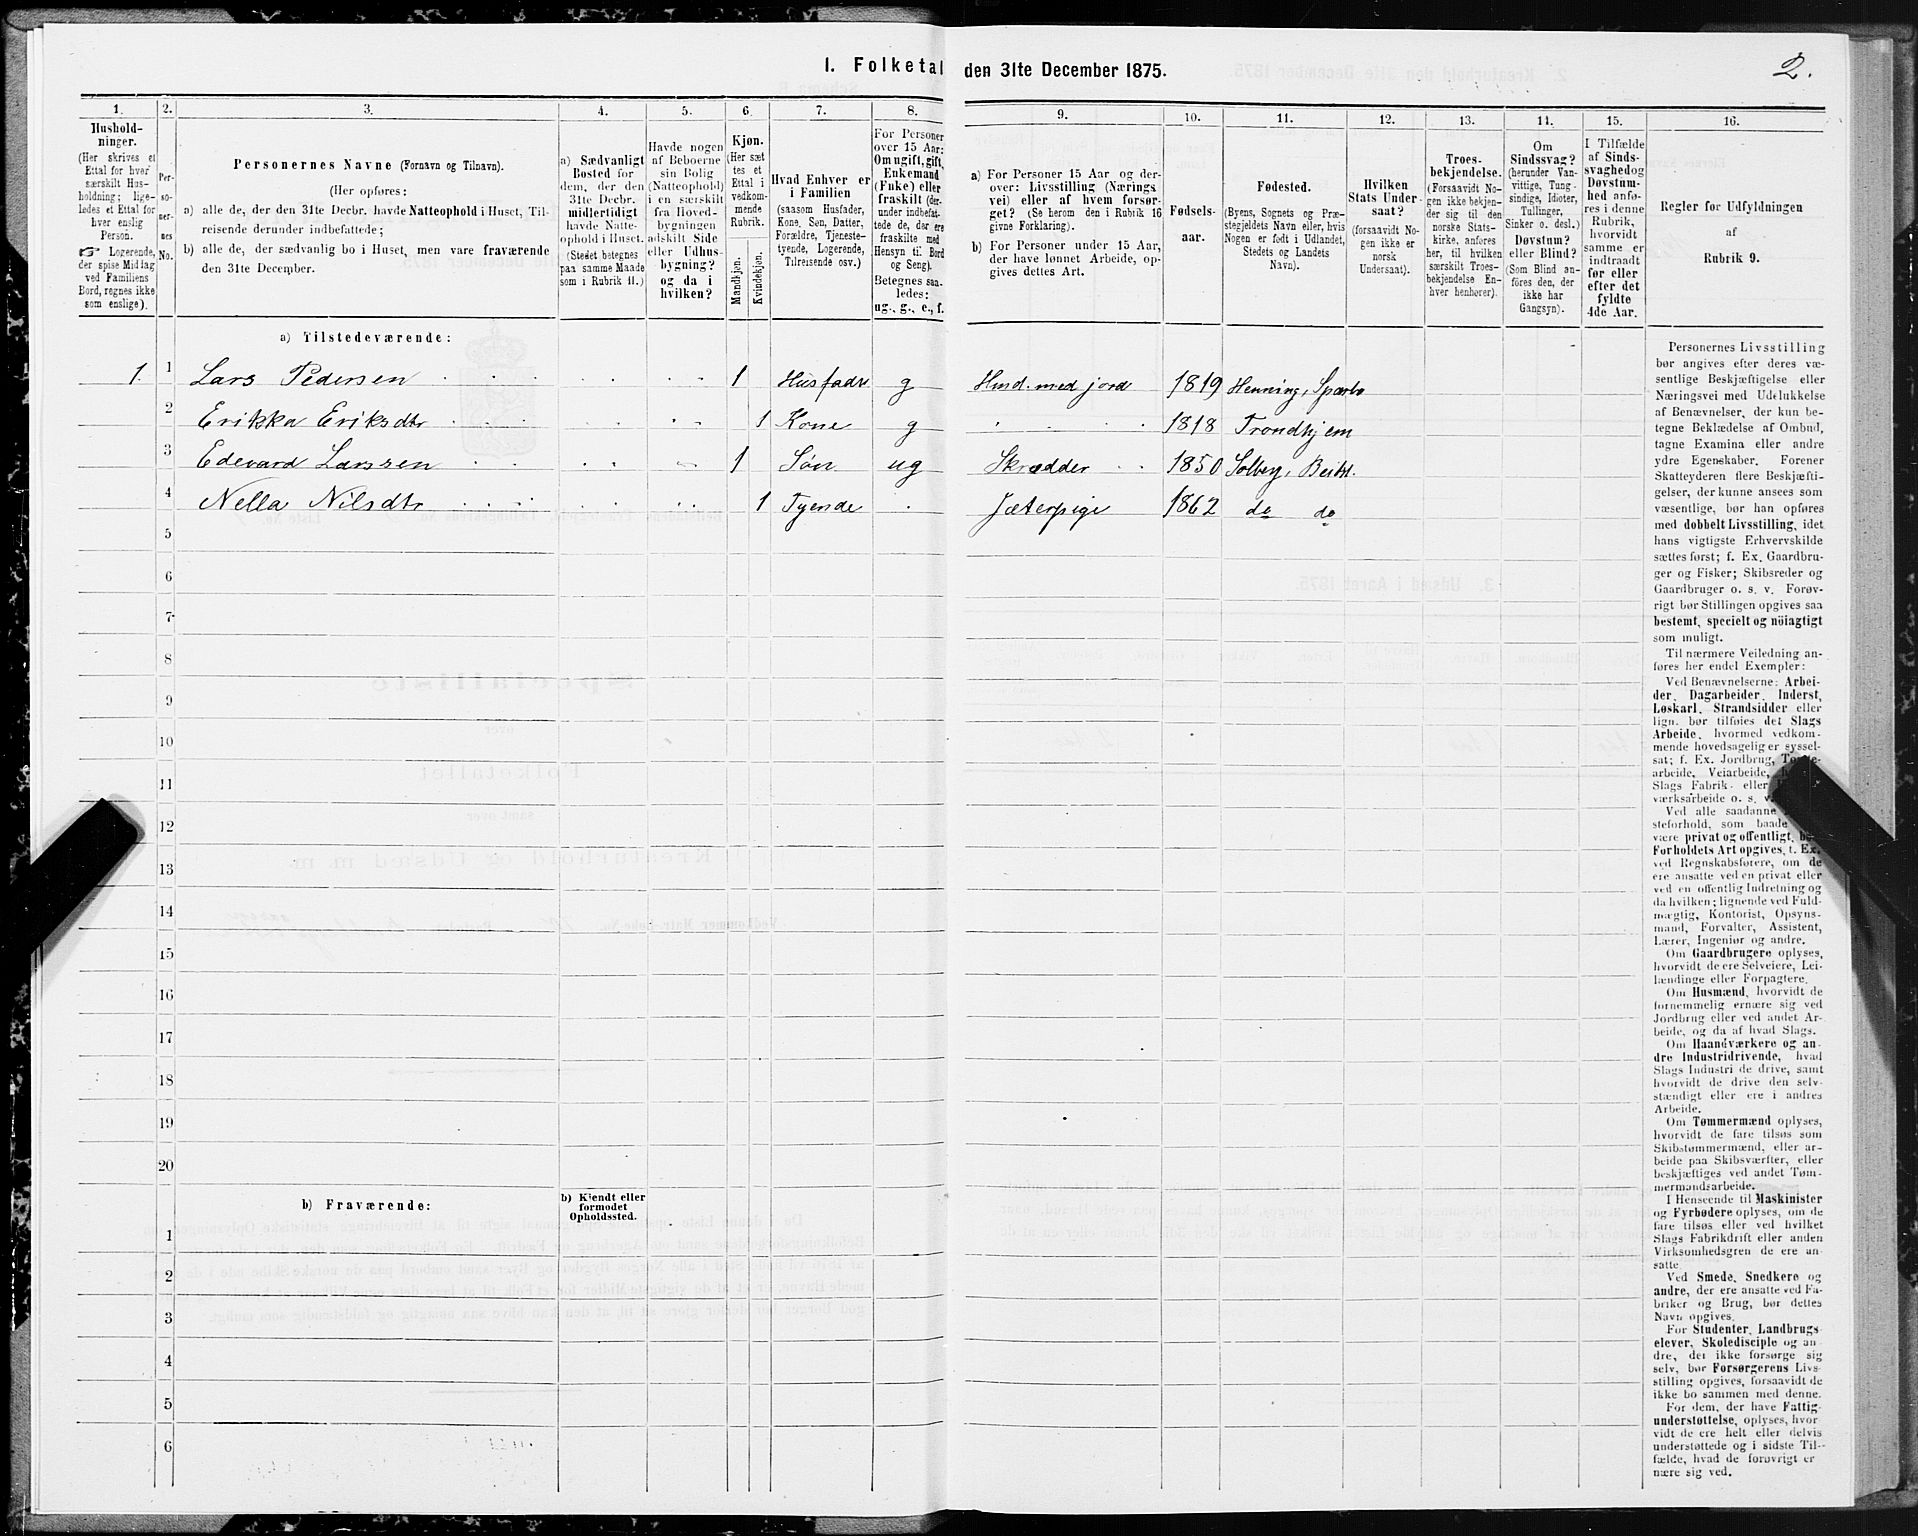 I. Folketal den 31te December 1875.
2.
1. 2. 3. 4. 5. 6. 7. 8. 9. 10. 11. 12. 13. 14. 15. 16.
Hushold-
ninger.
(Her skrives et
Ettal for hver
særskilt Hus-
holdning; lige-
ledes et Ettal for
hver enslig
Person.
☞ Logerende,
der spise Middag
ved Familiens
Bord, regnes ikke
som enslige).
Per-
so-
ner-
nes
No.
Personernes Navne (Fornavn og Tilnavn).
(Her opføres:
a) alle de, der den 31te Decbr. havde Natteophold i Huset, Til-
reisende derunder indbefattede;
b) alle de, der sædvanlig bo i Huset, men vare fraværende
den 31te December.
a) Sædvanligt
Bosted for
dem, der den
31te Decbr.
midlertidigt
havde Natte-
ophold i Huset.
(Stedet betegnes
paa samme Maade
som i Rubrik 11.)
Havde nogen
af Beboerne
sin Bolig
(Natteophold)
i en særskilt
fra Hoved-
bygningen
adskilt Side
eller Udhus-
bygning?
og da i
hvilken?
Kjøn.
(Her sæt
tes et
Ettal i
vedkom-
mende
Rubrik.
Mandkjøn.
Kvindekjøn.
Hvad Enhver er
i Familien
(saasom Husfader,
Kone, Søn, Datter,
Forældre, Tjeneste-
tyende, Logerende,
Tilreisende osv.)
For Personer
over 15 Aar:
Om ugift, gift,
Enkemand
(Enke) eller
fraskilt (der-
under indbefat-
tede de, der ere
fraskilte med
Hensyn til Bord
og Seng).
Betegnes saa-
ledes:
ug., g., e., f.
a) For Personer 15 Aar og der-
over: Livsstilling (Nærings
vei) eller af hvem forsør-
get? (Se herom den i Rubrik 16
givne Forklaring).
b) For Personer under 15 Aar,
der have lønnet Arbeide, op-
gives dettes Art.
Fødsels-
aar.
Fødested.
(Byens, Sognets og Præ-
stegjeldets Navn eller, hvis
Nogen er født i Udlandet,
Stedets og Landets
Navn).
Hvilken
Stats Under-
saat?
(forsaavidt No-
gen ikke er
norsk
Undersaat).
Troes-
bekjendelse.
(Forsaavidt No-
gen ikke bekjen-
der sig til den
norske Stats-
kirke, anføres
her, til hvilken
særskilt Troes-
bekjendelse En-
hver henhører).
Om
Sindssvag?
(herunder Van-
vittige, Tung-
sindige, Idioter,
Tullinger,
Sinker o. desl.)
Døvstum?
eller Blind?
(Som Blind an-
føres den, der
ikke har
Gangsyn).
I Tilfælde
af Sinds-
svaghed og
Døvstum-
hed anfø-
res i denne
Rubrik,
hvorvidt
samme er
indtraadt
før eller
efter det
fyldte
4de Aar.
Regler for Udfyldningen
af
Rubrik 9.
a) Tilstedeværende:
1. 1 Lars Pedersen 1 Husfadr g Husd. med jord 1819 Henning, Sparbo
2 Erikka Eriksdtr 1 Kone g 1818 Trondhjem
3 Edevard Larssen 1 Søn ug Skrædder 1850 Solberg, Beitst.
4 Nella Nilsdtr 1 Tyende Jæterpige 1862 do do
5
6
7
8
9
10
11
12
13
14
15
16
17
18
19
20
b) Fraværende:
b) Kjendt eller
formodet
Opholdssted.
1
2
3
4
5
6
Personernes Livsstilling
bør angives efter deres væ-
sentlige Beskjæftigelse eller
Næringsvei med Udelukkelse
af Benævnelser, der kun be-
tegne Beklædelse af Ombud,
tagne Examina eller andre
ydre Egenskaber. Forener
Skatteyderen flere Beskjæfti-
gelser, der kunne ansees som
væsentlige, bør han opføres
med dobbelt Livsstilling, idet
hans vigtigste Erhvervskilde
sættes først; f. Ex. Gaardbru-
ger og Fisker; Skibsreder og
Gaardbruger o. s. v. Forøv-
rigt bør Stillingen opgives saa
bestemt, specielt og nøiagtigt
som muligt.
Til nærmere Veiledning an-
føres her endel Exempler:
Ved Benævnelserne: Arbei-
der, Dagarbeider, Inderst,
Løskarl, Strandsidder eller
lign. bør tilføies det Slags
Arbeide, hvormed vedkom-
mende hovedsagelig er syssel-
sat; f. Ex. Jordbrug,
arbeide, Veiarbeide,
Slags Fabrik- eller
værksarbeide o. s. v.
Ved alle saadanne
steforhold, som baade
være privat og offentligt,
Forholdets Art opgives, f. Ex.
ved Regnskabsførere, om de
ere ansatte ved en privat eller
ved en offentlig Indretning og
da hvilken; lignende ved Fuld-
mægtig, Kontorist, Opsyns-
mand, Forvalter, Assistent,
Lærer, Ingeniør og andre.
Om Gaardbrugere oplyses,
hvorvidt de ere Selveiere, Lei-
lændinge eller Forpagtere.
Om Husmænd, hvorvidt de
fornemmelig ernære sig ved
Jordbrug eller ved andet Ar-
beide, og da af hvad Slags.
Om Haandværkere og an-
dre Industridrivende, hvad
Slags Industri de drive, samt
hvorvidt de drive den selv-
stændigt eller ere i andres
Arbeide.
Om Tømmermænd oplyses,
hvorvidt de fare tilsøs som
Skibstømmermænd, eller ar-
beide paa Skibsværfter, eller
beskjæftiges ved andet Tøm-
mermandsarbeide.
I Henseende til Maskinister
og Fyrbødere oplyses, om de
fare tilsøs eller ved hvilket
Slags Fabrikdrift eller anden
Virksomhedsgren de ere an-
satte.
Ved Smede, Snedkere og
andre, der ere ansatte ved Fa-
briker og Brug, bør dettes
Navn opgives.
For Studenter, Landbrugs
elever, Skoledisciple og an-
dre, der ikke forsørge sig
selv, bør Forsørgerens Livs-
stilling opgives, forsaavidt de
ikke bo sammen med denne.
For dem, der have Fattig-
understøttelse, oplyses, hvor
vidt de ere helt eller delvis
understøttede og i sidste Til-
fælde, hvad de forøvrigt er
nære sig ved.